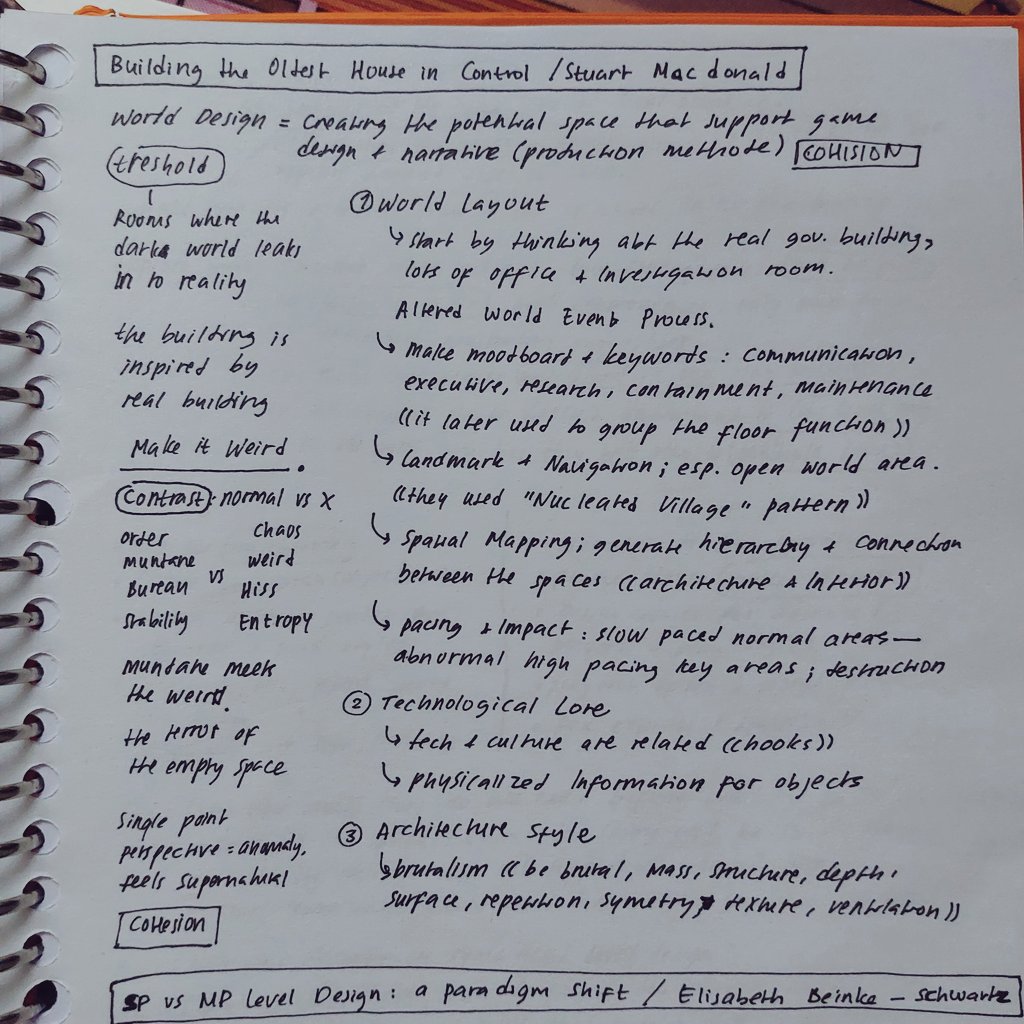 Building the Oldest House in Control / Stuart Macdonald
World Design = creating the potential space that support game
design + narrative (production methode) COHISION
treshold
Rooms where the
dark world leaks
in to reality
the building is
inspired by
real building
Make it Weird.
Contrast: normal vs X
order chaos
mundane vs weird
Bureau Hiss
Stability Entropy
mundane meets
the weird.
the terror of
the empty space
Single point
perspective = anomaly.
feels supernatural
COHESION
① World Layout
↳ start by thinking abt the real gov. building,
lots of office + investigation room.
Altered World Event Process.
↳ Make moodboard + keywords : communication,
executive, research, containment, maintenance
((it later used to group the floor function))
↳ Landmark + Navigation ; esp. open world area.
((they used "Nucleated Village" pattern))
↳ Spatial Mapping ; generate hierarchy + connection
between the spaces ((architecture + Interior))
↳ pacing + Impact : slow paced normal areas —
abnormal high pacing key areas ; destruction
② Technological Lore
↳ tech + culture are related ((hooks))
↳ physicalized Information for objects
③ Architecture Style
↳ brutalism ((be brutal, mass, structure, depth,
surface, repetition, symetry, texture, ventilation))
SP vs MP Level Design : a paradigm shift / Elisabeth Beinke – Schwartz